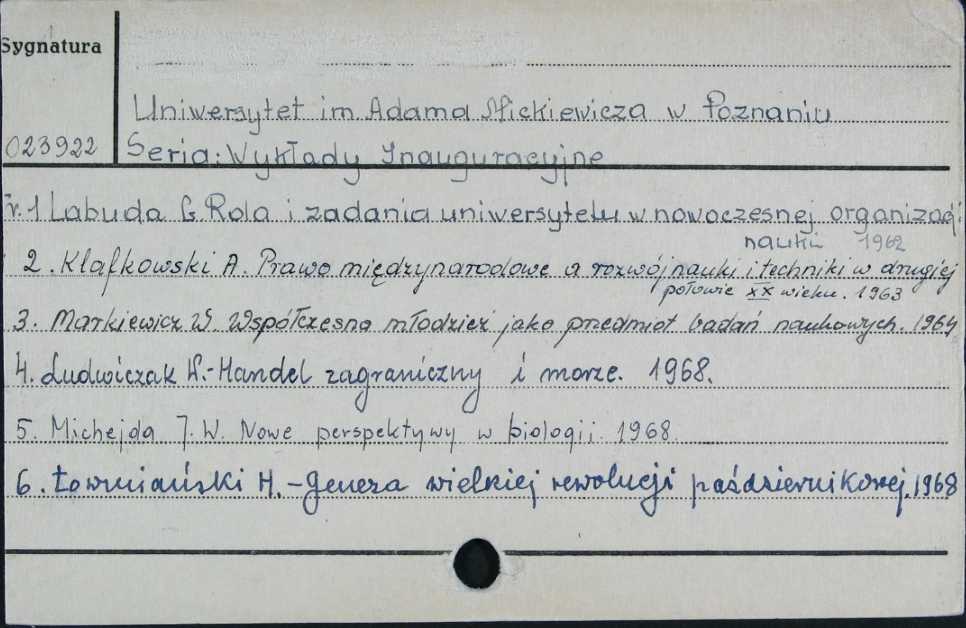 Sygnatura
Uniwersytet im. Adama Mickiewicza w Poznaniu
023922
Seria: Wykłady Inauguracyjne
Nr. 1 Labuda G. Rola i zadania uniwersytetu w nowoczesnej organizacji
nauki 1962
2. Klafkowski A. Prawo międzynarodowe a rozwój nauki i techniki w drugiej
połowie XX wieku. 1963
3. Markiewicz W. Współczesna młodzież jako przedmiot badań naukowych. 1964
4. Ludwiczak W. - Handel zagraniczny i morze. 1968.
5. Michejda J. W. Nowe perspektywy w biologii. 1968.
6. Łowmiański H. - Geneza wielkiej rewolucji październikowej. 1968